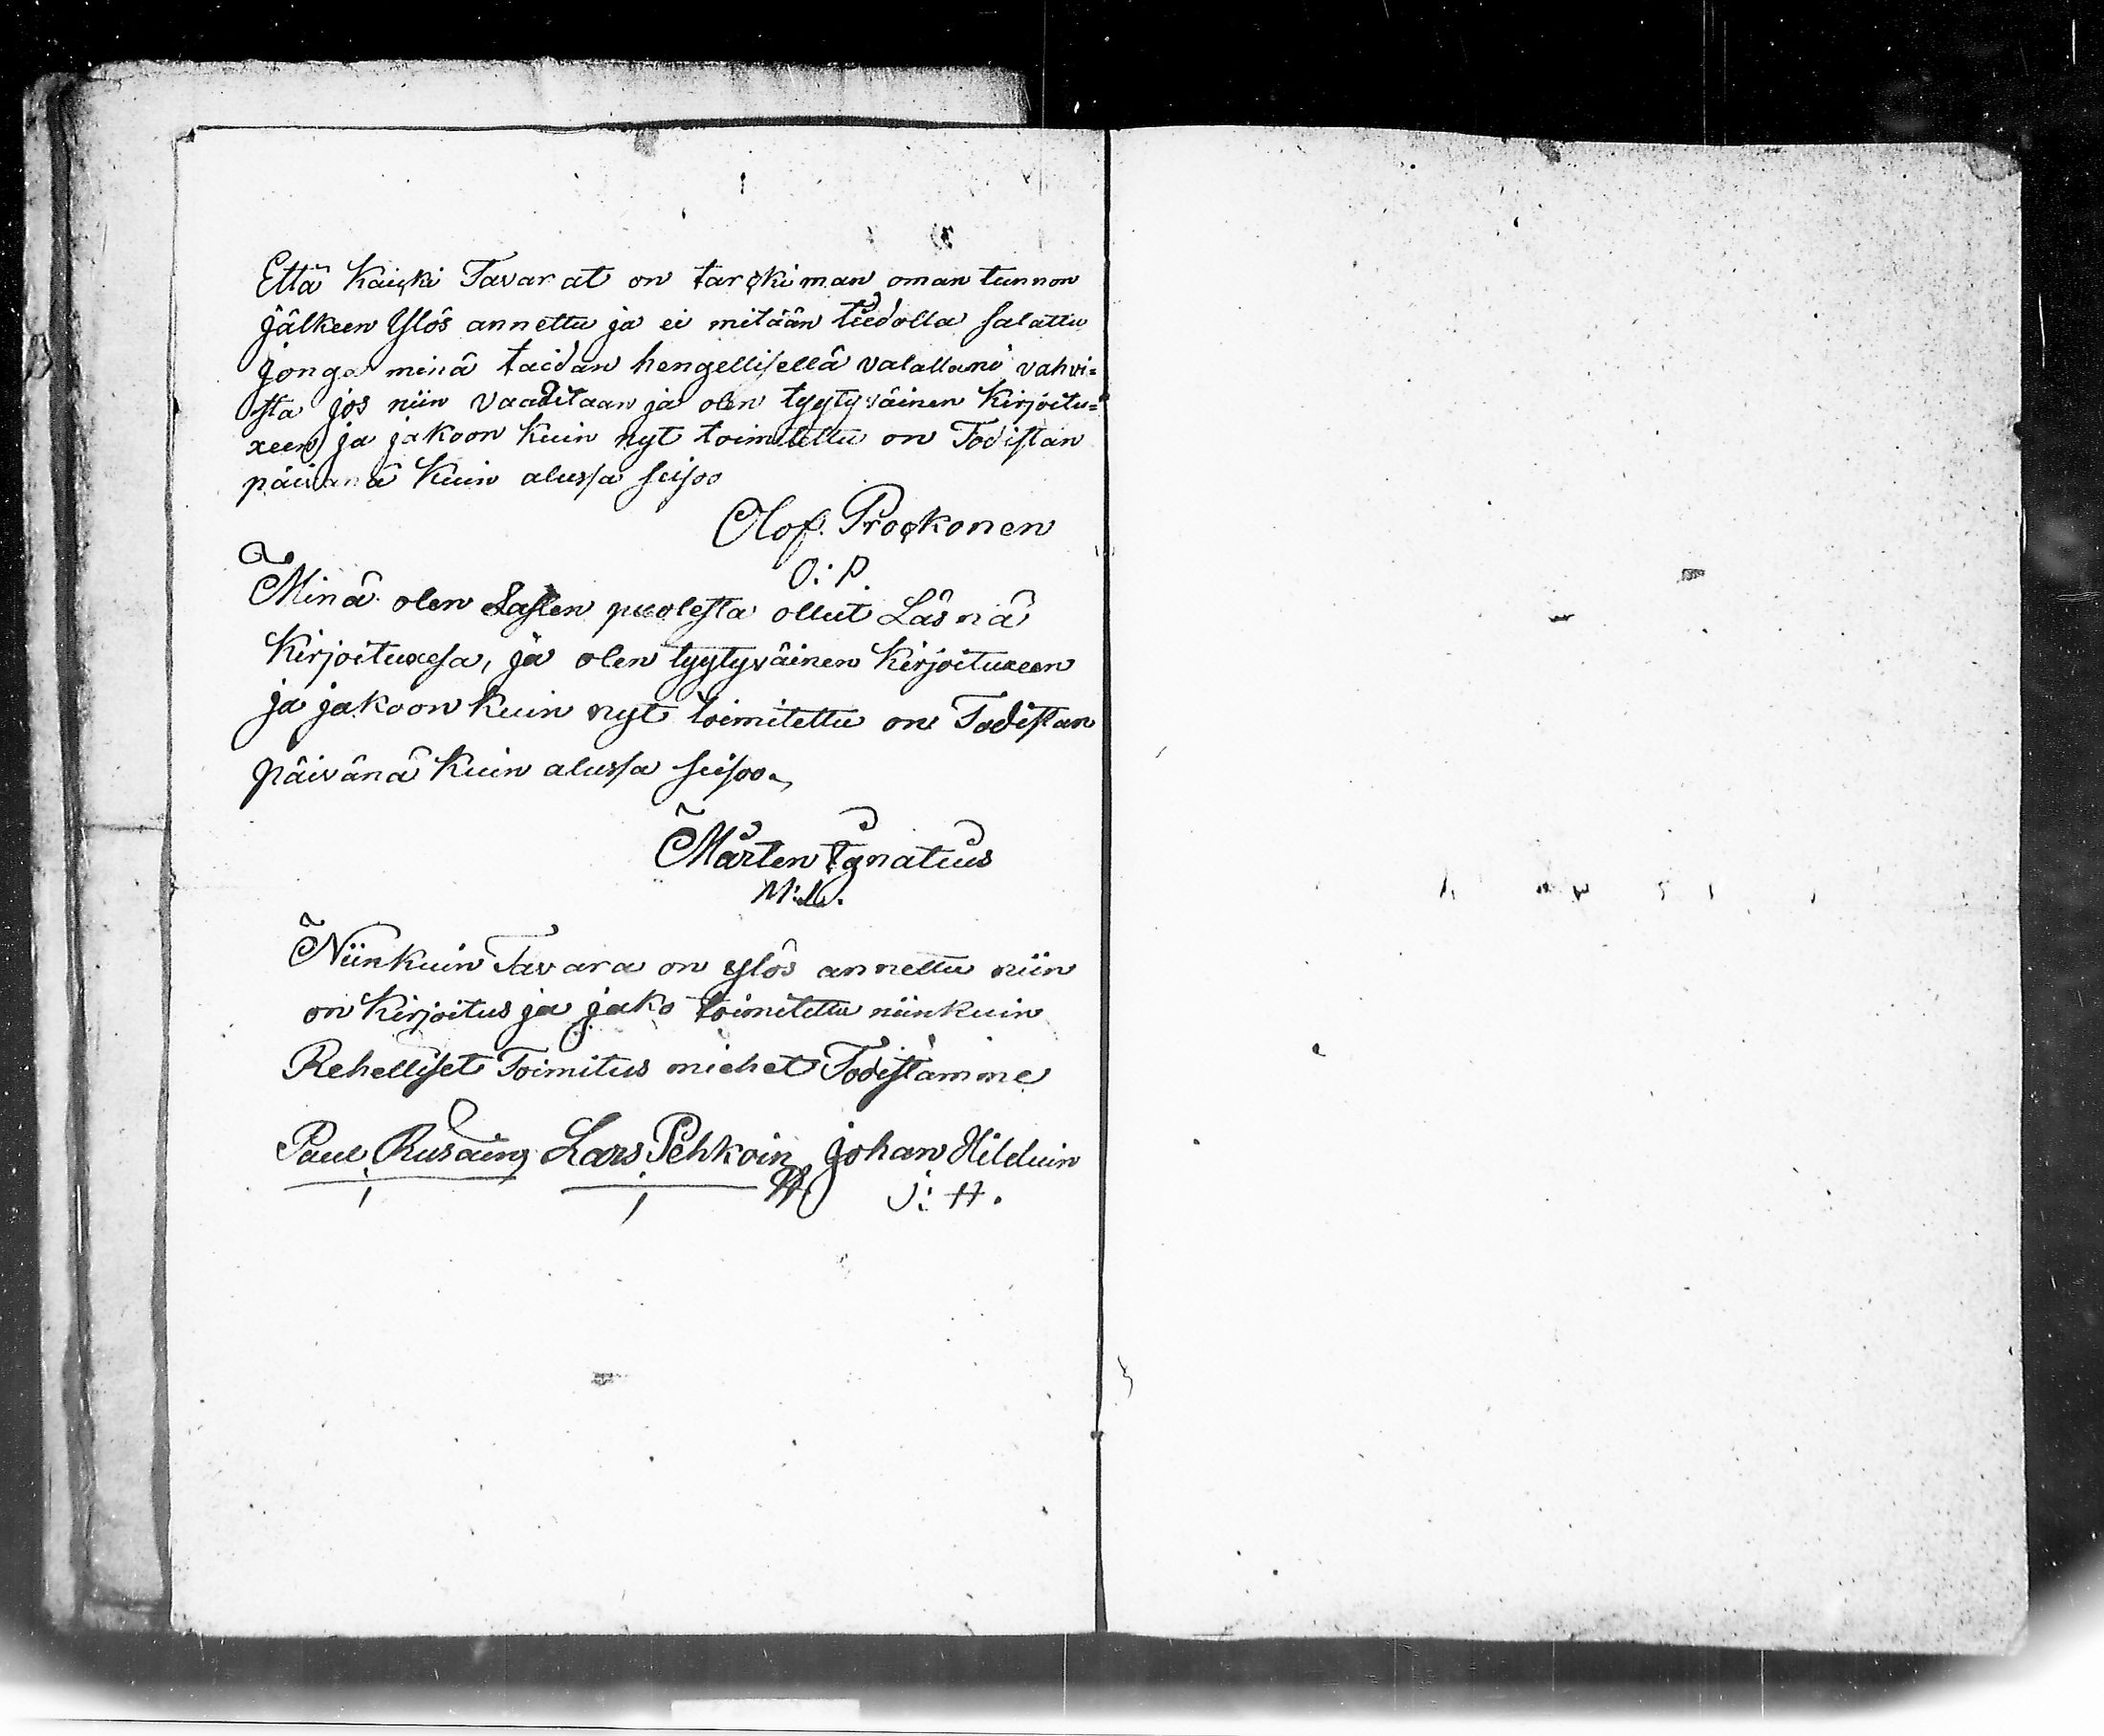 Että Kaicki Tavarat on tarckiman oman tunnon
jälkeen Ylös annettu ja ei mitään tiedolla salattu
jonga minä taidan hengellisellä valallani vahwi=
sta jos niin vaaditaan ja olen tyytyväinen Kirjoitu=
xeen ja jakoon Kuin nyt toimitettu on Todistan
päivänä Kuin alussa seisoo
Olof. Prockonen
O: P.
Minä olen Lasten puolesta ollut Läsnä
Kirjoituxesa, ja olen tyytyväinen Kirjoituxeen
ja jakoon Kuin nyt toimitettu on Todistan
päivänä Kuin alussa seisoo
Mårten Ignatius
Niinkuin Tavara on ylös annettu niin
on Kirjoitus ja jako toimitettu niinkuin
Rehelliset Toimitus miehet Todistamme
Paul Rusaing Lars Pehkoin Johan Hilduin
J: H.